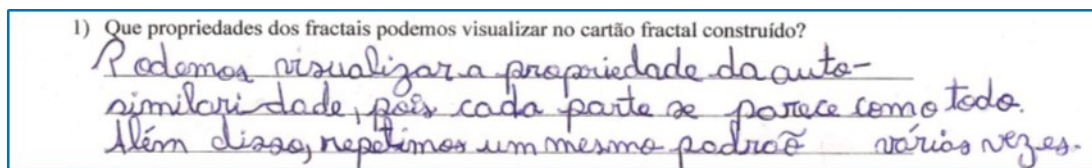 1) Que propriedades dos fractais podemos visualizar no cartão fractal construído?
Podemos visualizar a propriedade da auto-
similaridade, pois cada parte se parece com o todo.
Além disso, repetimos um mesmo padrão várias vezes.